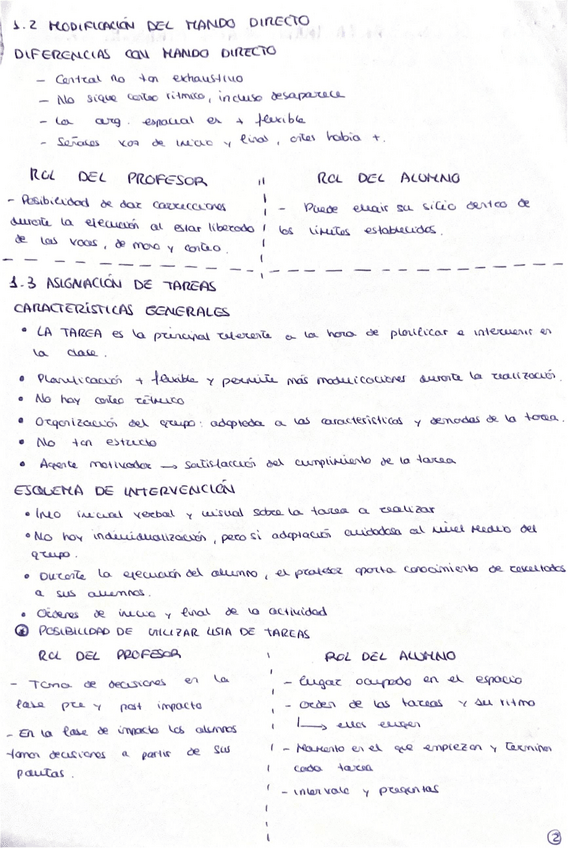 1.2 MODIFICACIÓN DEL MANDO DIRECTO
DIFERENCIAS CON MANDO DIRECTO
- Control no tan exhaustivo
- No sigue conteo rítmico, incluso desaparece
- La org. espacial es + flexible
- Señales voz de inicio y final, antes había +.
ROL DEL PROFESOR
- Posibilidad de dar correcciones
durante la ejecución al estar liberado
de las voces, de mano y conteo.
ROL DEL ALUMNO
- Puede elegir su sitio dentro de
los límites establecidos.
1.3 ASIGNACIÓN DE TAREAS
CARACTERÍSTICAS GENERALES
• LA TAREA es la principal referente a la hora de planificar e intervenir en
la clase.
• Planificación + flexible y permite más modificaciones durante la realización.
• No hay conteo rítmico
• Organización del grupo: adaptada a las características y demandas de la tarea.
• No tan estricto
• Agente motivador → satisfacción del cumplimiento de la tarea
ESQUEMA DE INTERVENCIÓN
• Info inicial verbal y visual sobre la tarea a realizar
• No hay individualización, pero si adaptación cuidadosa al nivel medio del
grupo.
• Durante la ejecución del alumno, el profesor aporta conocimiento de resultados
a sus alumnos.
• Órdenes de inicio y final de la actividad
POSIBILIDAD DE UTILIZAR LISTA DE TAREAS
ROL DEL PROFESOR
- Toma de decisiones en la
fase pre y post impacto
- En la fase de impacto los alumnos
toman decisiones a partir de sus
pautas.
ROL DEL ALUMNO
- Lugar ocupado en el espacio
- Orden de las tareas y su ritmo
↳ ellos eligen
- Momento en el que empiezan y terminan
cada tarea
- Intervalo y preguntas
2